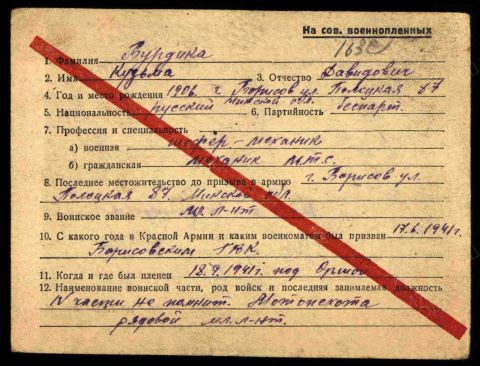 На сов. военнопленных
163
1. Фамилия Бурдика
2. Имя Кузьма 3. Отчество Давидович
4. Год и место рождения 1906 г. Борисов ул. Полоцкая 87
Минской обл.
5. Национальность Русский 6. Партийность беспарт.
7. Профессия и специальность
а) военная шофер-механик
б) гражданская механик м.т.с.
8. Последнее местожительство до призыва в армию г. Борисов ул.
Полоцкая 87. Минской обл.
9. Воинское звание мл. л-нт
10. С какого года в Красной Армии и каким военкоматом был призван 17.6.1941г.
Борисовским ГВК.
11. Когда и где был пленен 18.9.1941г. под Оршой
12. Наименование воинской части, род войск и последняя занимаемая должность
N части не помнит. Мотопехота
рядовой мл. л-нт.